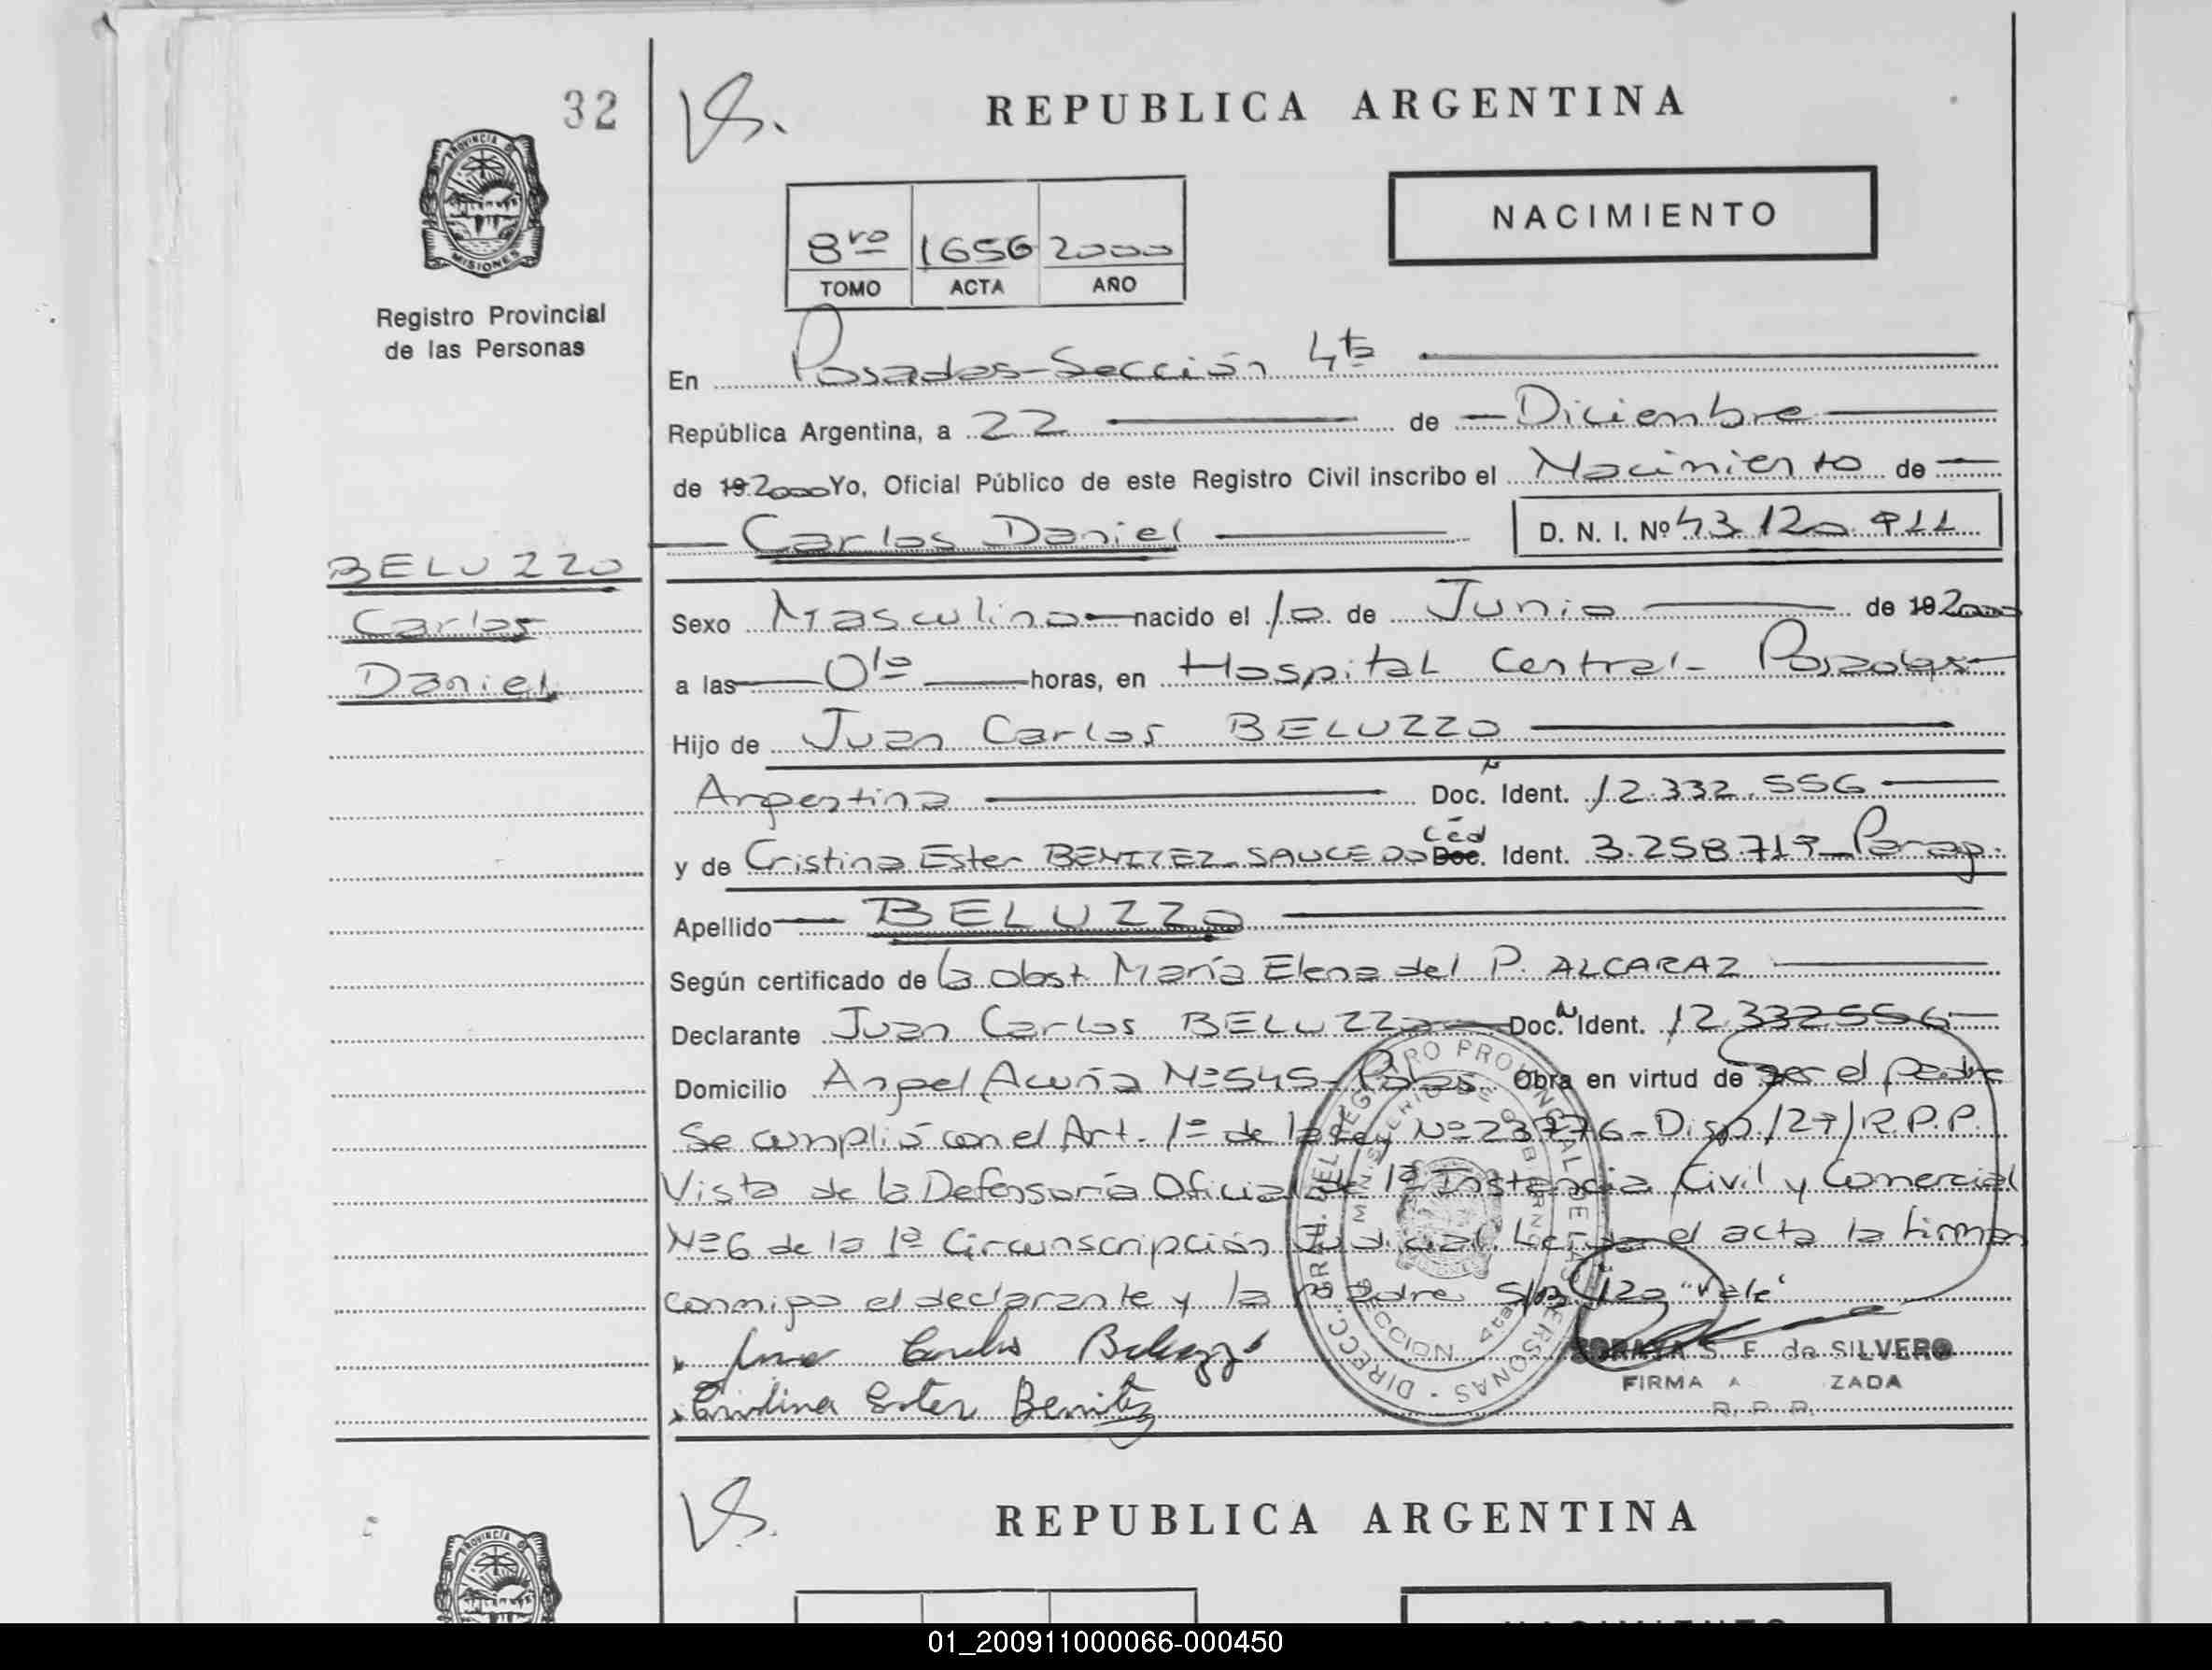 32
REPUBLICA ARGENTINA
PROVINCIA DE
MISIONES
Registro Provincial
de las Personas
NACIMIENTO
8vo 1656 2000
TOMO ACTA AÑO
En Posadas-Sección 4ta
República Argentina, a 22 de Diciembre
de 19 2000 Yo, Oficial Público de este Registro Civil inscribo el Nacimiento de
Carlos Daniel D. N. I. Nº 43.120.911
BELUZZO
Carlos
Daniel
Sexo Masculino nacido el 10 de Junio de 19 2000
a las 01a horas, en Hospital Central- Posadas
Hijo de Juan Carlos BELUZZO
Argentina Doc. N Ident. 12.332.556
y de Cristina Ester BENITEZ SAUCEDO Céd Doc. Ident. 3.258.719 Parag.
Apellido BELUZZO
Según certificado de la Obst. María Elena del P. ALCARAZ
Declarante Juan Carlos BELUZZO Doc. N Ident. 12.332.556
Domicilio Angel Acuña Nº 545- Pdas Obra en virtud de ser el padre
Se cumplió con el Art. 1º de la Ley Nº 23776-Disp. 127/R.P.P.
Vista de la Defensoría Oficial de 1ª Instancia Civil y Comercial
Nº 6 de la 1ª Circunscripción Judicial. Leída el acta la firman
conmigo el declarante y la madre S/B 120 "Vale"
Juan Carlos Beluzzo
Cristina Ester Benitez
DIRECC. GRAL. DEL REGISTRO PROVINCIAL DE LAS PERSONAS
MINISTERIO DE GOBIERNO
SECCION 4ta
SORAYA S. F. de SILVERO
FIRMA A ZADA
R. P. P.
REPUBLICA ARGENTINA
PROVINCIA DE
NACIMIENTO
01_200911000066-000450